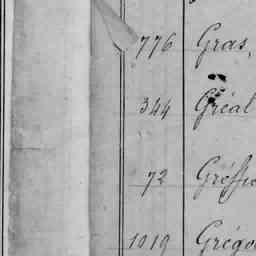 776 Gras,
344 Gréal
72 Greffie
1019 Grégo